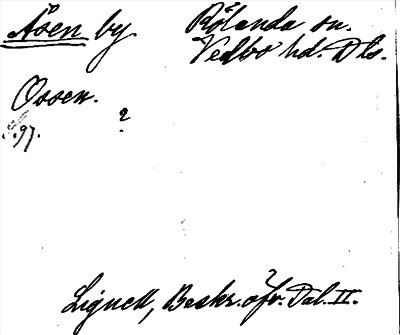 Åsen by.
Rölanda sn.
Vedbo hd. Dls.
Ossen.
S. 97.
?
Lignell, Beskr. öfv. Dal. II.